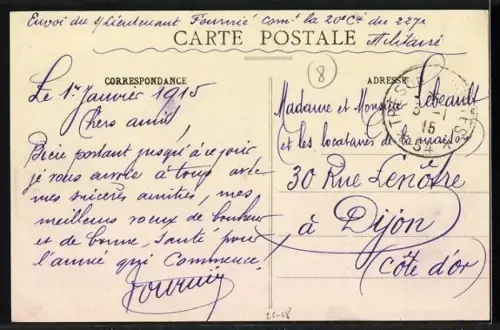 Envoi du s/Lieutenant Fournié comt la 20e Cie du 227e
Militaire
CARTE POSTALE
8
CORRESPONDANCE
ADRESSE
Le 1er Janvier 1915
Chers amis,
Bien portant jusqu'à ce jour
je vous envoie à tous avec
mes sincères amitiés, mes
meilleurs voeux de bonheur
et de bonne santé pour
l'année qui commence!
Fournié
Madame et Monsieur Lebeault
(et les locataires de la maison)
30 Rue Lenôtre
à Dijon
(Côte d'or)
TRESOR
15
25-18